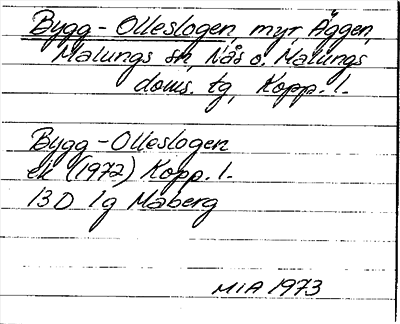 Bygg-Olleslogen, myr, Äggen,
Malungs sn, Nås o. Malungs
doms. tg, Kopp. l.
Bygg-Olleslogen
ek (1972) Kopp. l.
13D 1g Maberg
MIA 1973